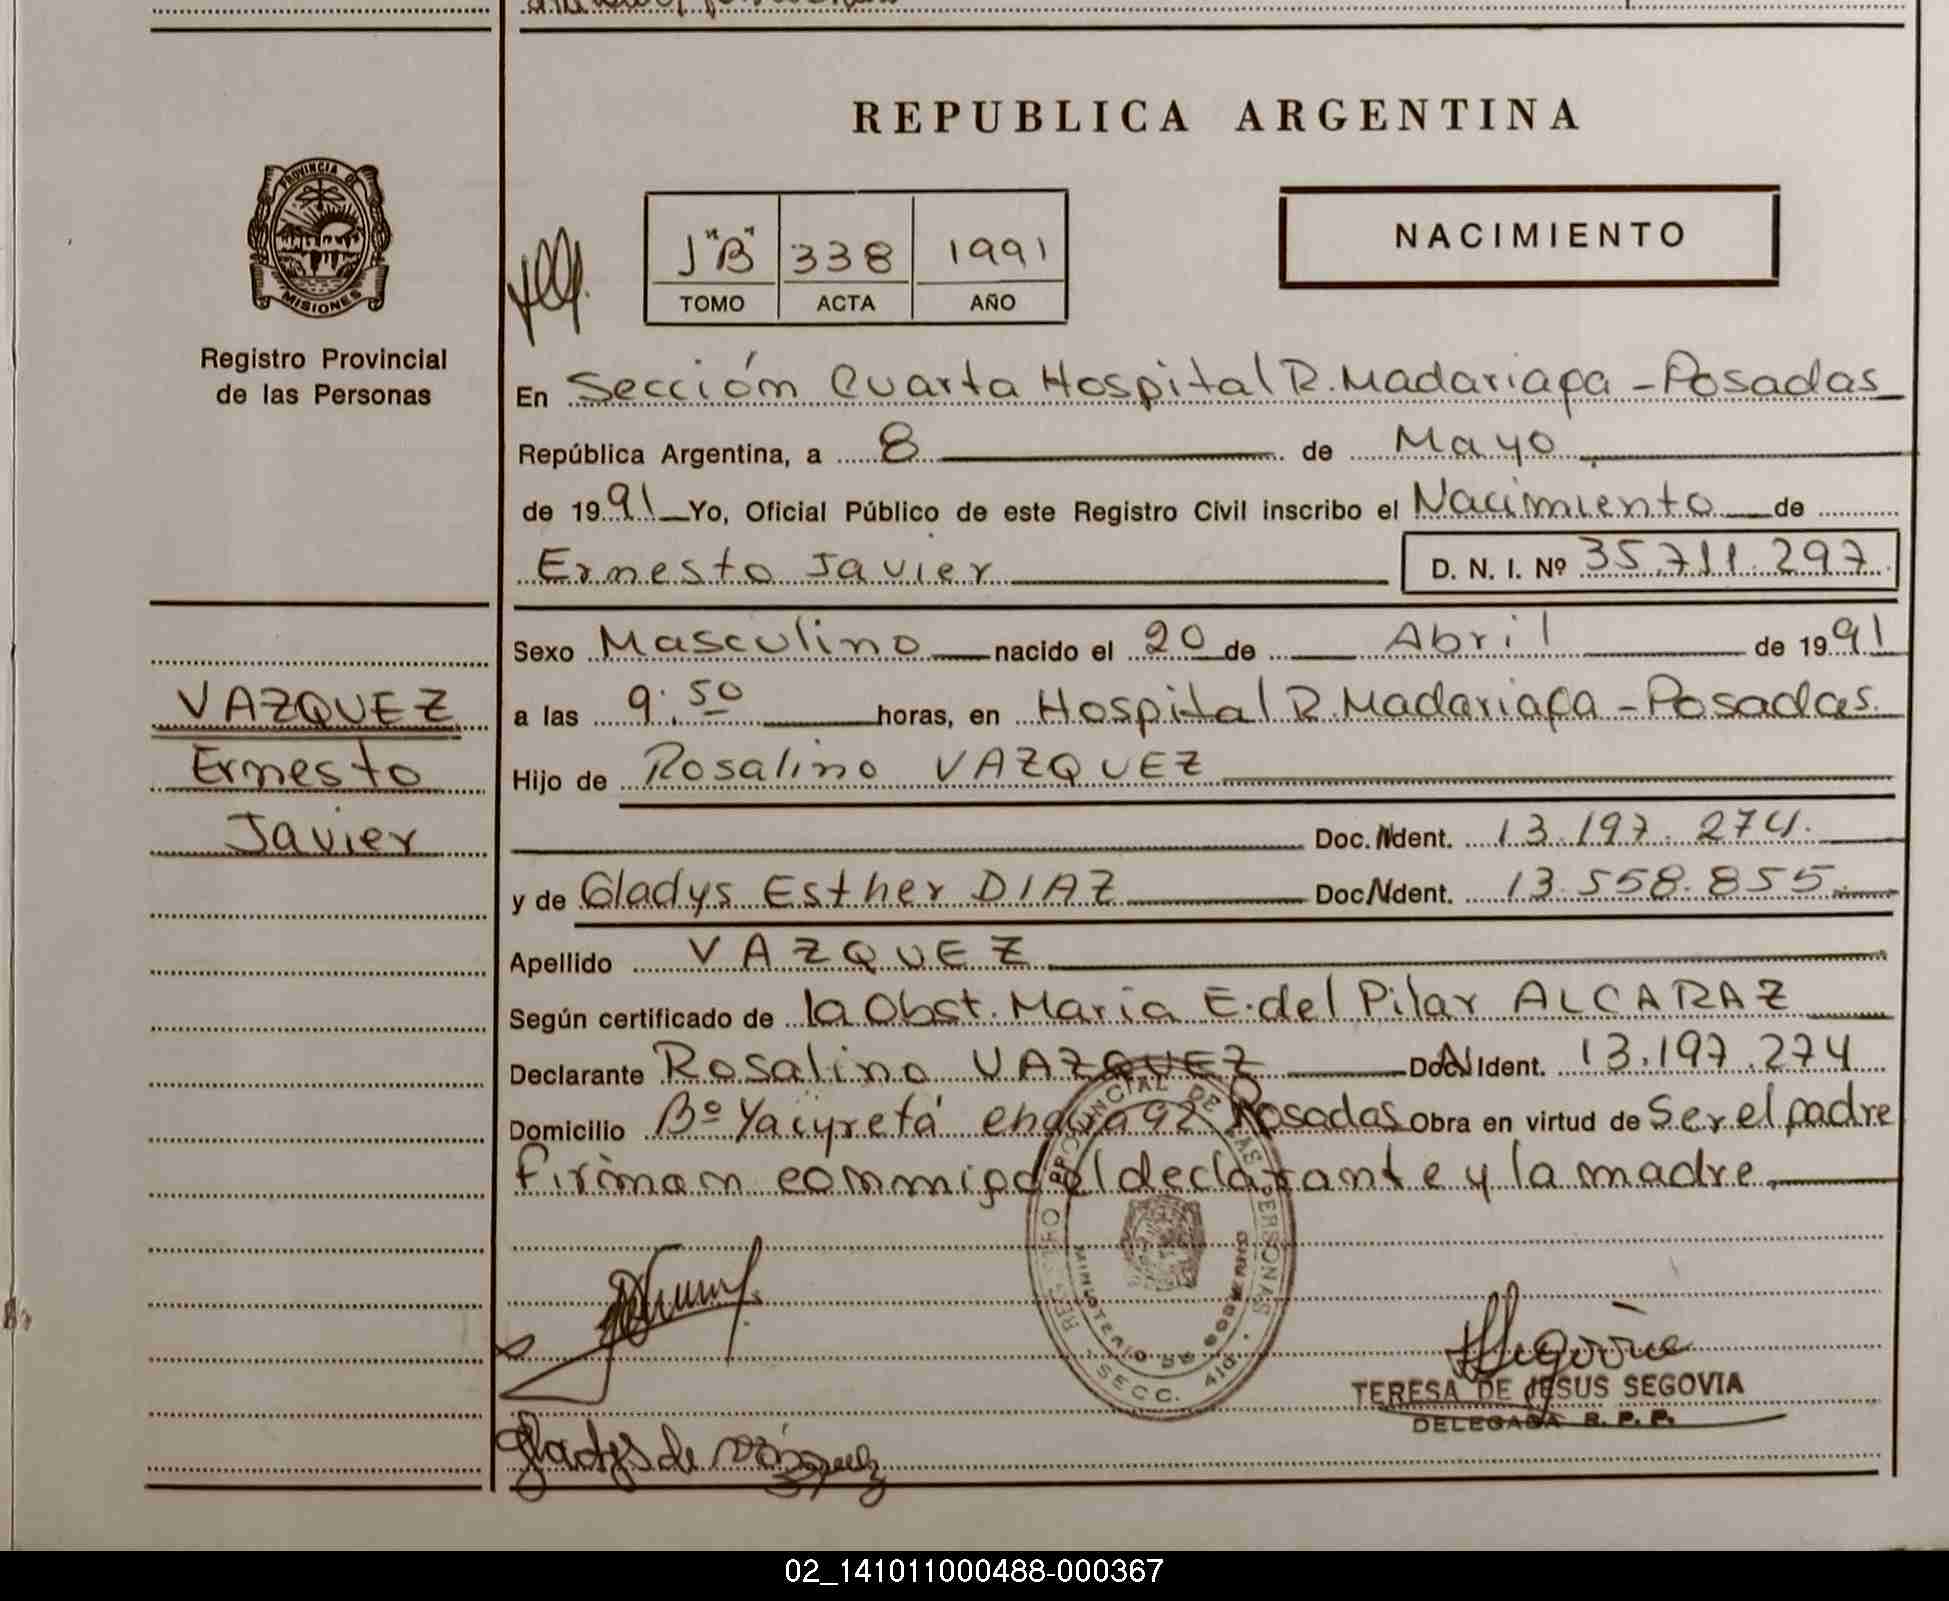 REPUBLICA ARGENTINA
PROVINCIA DE
MISIONES
Registro Provincial
de las Personas
J "B" 338 1991
TOMO ACTA AÑO
NACIMIENTO
En Sección Cuarta Hospital R. Madariaga - Posadas
República Argentina, a 8 de Mayo
de 1991 Yo, Oficial Público de este Registro Civil inscribo el Nacimiento de
Ernesto Javier D. N. I. Nº 35.711.297
Sexo Masculino nacido el 20 de Abril de 1991
a las 9:50 horas, en Hospital R. Madariaga - Posadas.
Hijo de Rosalino VAZQUEZ
Doc. Ident. 13.197.274.
y de Gladys Esther DIAZ Doc Ident. 13.558.855
Apellido VAZQUEZ
Según certificado de la Obst. Maria E. del Pilar ALCARAZ
Declarante Rosalino VAZQUEZ Doc Ident. 13.197.274
Domicilio Bº Yacyretá 92 Posadas Obra en virtud de Ser el padre
firman conmigo el declarante y la madre.
VAZQUEZ
Ernesto
Javier
REGISTRO PROVINCIAL DE LAS PERSONAS
MINISTERIO DE GOBIERNO
SECC. 4ta.
Segovia
TERESA DE JESUS SEGOVIA
DELEGADA R. P. P.
Gladys de Vázquez
02_141011000488-000367